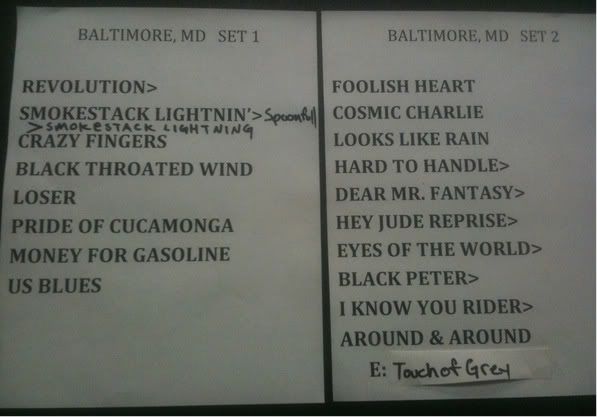 BALTIMORE, MD SET 1
REVOLUTION>
SMOKESTACK LIGHTNIN'> Spoonfull
> SMOKESTACK LIGHTNING
CRAZY FINGERS
BLACK THROATED WIND
LOSER
PRIDE OF CUCAMONGA
MONEY FOR GASOLINE
US BLUES
BALTIMORE, MD SET 2
FOOLISH HEART
COSMIC CHARLIE
LOOKS LIKE RAIN
HARD TO HANDLE>
DEAR MR. FANTASY>
HEY JUDE REPRISE>
EYES OF THE WORLD>
BLACK PETER>
I KNOW YOU RIDER>
AROUND & AROUND
E: Touch of Grey